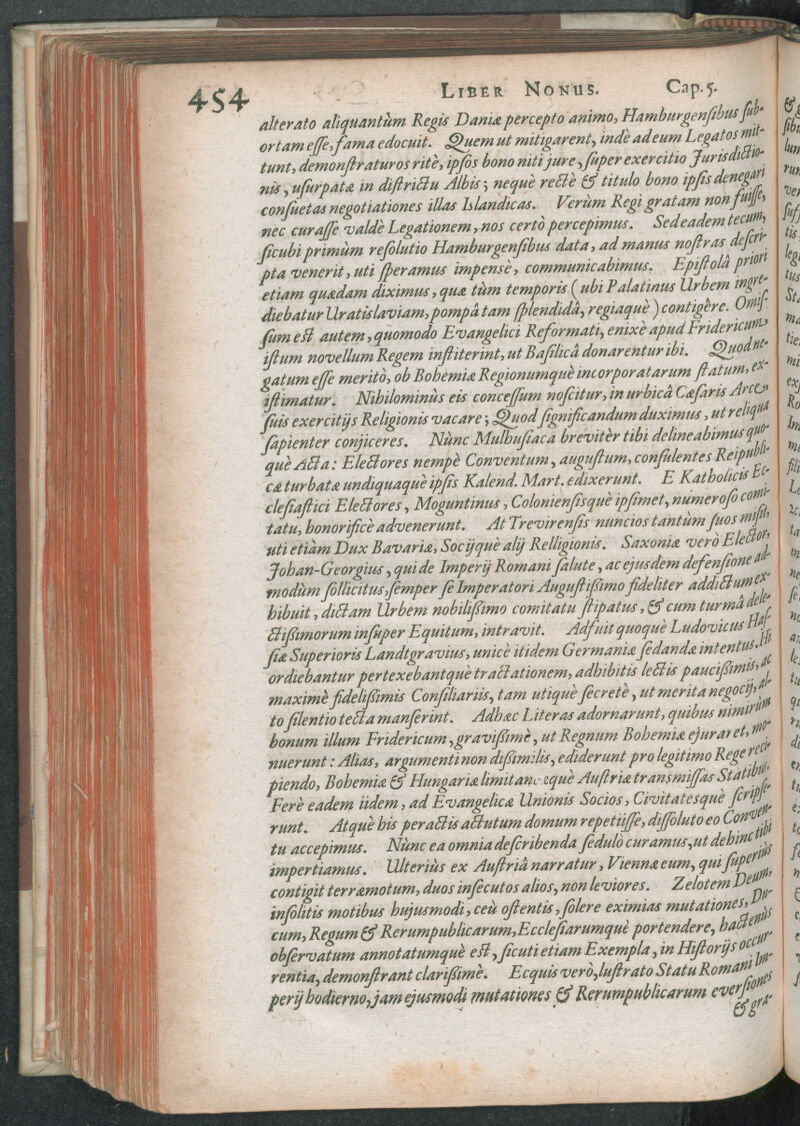 454 LIBER NONUS. Cap. 5.
alterato aliquantùm Regis Daniæ percepto animo, Hamburgensibus sub-
ortam esse, fama edocuit. Quem ut mitigarent, indè ad eum Legatos mit-
tunt, demonstraturos ritè, ipsos bono niti jure, super exercitio Jurisdictio-
nis, usurpatæ in districtu Albis; nequè rectè & titulo bono ipsis denegari
consuetas negotiationes illas Islandicas. Verùm Regi gratam non fuisse,
nec curasse valdè Legationem, nos certò percepimus. Sed eadem tecum,
sicubi primùm resolutio Hamburgensibus data, ad manus nostras descri-
pta venerit, uti speramus impensè, communicabimus. Epistolâ priori
etiam quædam diximus, quæ tùm temporis (ubi Palatinus Urbem ingre-
diebatur Uratislaviam, pompâ tam splendidâ, regiaquè) contigêre. Omis-
sum est autem, quomodo Evangelici Reformati, enixè apud Fridericum
istum novellum Regem institerint, ut Basilicâ donarentur ibi. Quod ne-
gatum esse meritò, ob Bohemiæ Regionumquè incorporatarum statum, ex-
istimatur. Nihilominùs eis concessum noscitur, in urbicâ Cæsaris Arce,
suis exercitijs Religionis vacare; Quod significandum duximus, ut reliqua
sapienter conjiceres. Nùnc Mulhusiaca brevitèr tibi delineabimus quo-
què Acta: Electores nempè Conventum, augustum, consulentes Reipubli-
cæ turbatæ undiquaquè ipsis Kalend. Mart. edixerunt. E Katholicis Ec-
clesiastici Electores, Moguntinus, Coloniensisquè ipsimet, numeroso comi-
tatu, honorificè advenerunt. At Trevirensis nuncios tantùm suos misit,
uti etiàm Dux Bavariæ, Socijquè alij Relligionis. Saxoniæ verò Elector,
Johan-Georgius, qui de Imperij Romani salute, ac ejusdem defensione ad-
modùm sollicitus, semper se Imperatori Augustissimo fideliter addictum ex-
hibuit, dictam Urbem nobilissimo comitatu stipatus, & cum turmâ dele-
ctissimorum insuper Equitum, intravit. Adfuit quoquè Ludovicus Has-
siæ Superioris Landtgravius, unicè itidem Germaniæ sedandæ intentus. Hi
ordiebantur pertexebantquè tractationem, adhibitis lectis paucissimis, ac
maximè fidelissimis Consiliariis, tam utiquè secretè, ut merita negocij, al-
to silentio tecta manserint. Adhæc Literas adornarunt, quibus nimirùm
bonum illum Fridericum, gravissimè, ut Regnum Bohemiæ ejuraret, mo-
nuerunt: Alias, argumenti non dissimilis, ediderunt pro legitimo Rege reci-
piendo, Bohemiæ & Hungariæ limitanezquè Austriæ transmissas Statibus.
Ferè eadem iidem, ad Evangelicæ Unionis Socios, Civitatesquè scripse-
runt. Atquè his peractis actutum domum repetiisse, dissoluto eo Conven-
tu accepimus. Nùnc ea omnia describenda sedulò curamus, ut dehinc tibi
impertiamus. Ulteriùs ex Austriâ narratur, Viennæ eum, qui superiùs
contigit terræmotum, duos insecutos alios, non leviores. Zelotem Deum,
insolitis motibus hujusmodi, ceù ostentis, solere eximias mutationes, Du-
cum, Regum & Rerumpublicarum, Ecclesiarumquè portendere, hactenùs
observatum annotatumquè est, sicuti etiam Exempla, in Historijs occur-
rentia, demonstrant clarissimè. Ecquis verò, lustrato Statu Romani Im-
perij hodierno, jam ejusmodi mutationes & Rerumpublicarum eversiones
& gra-